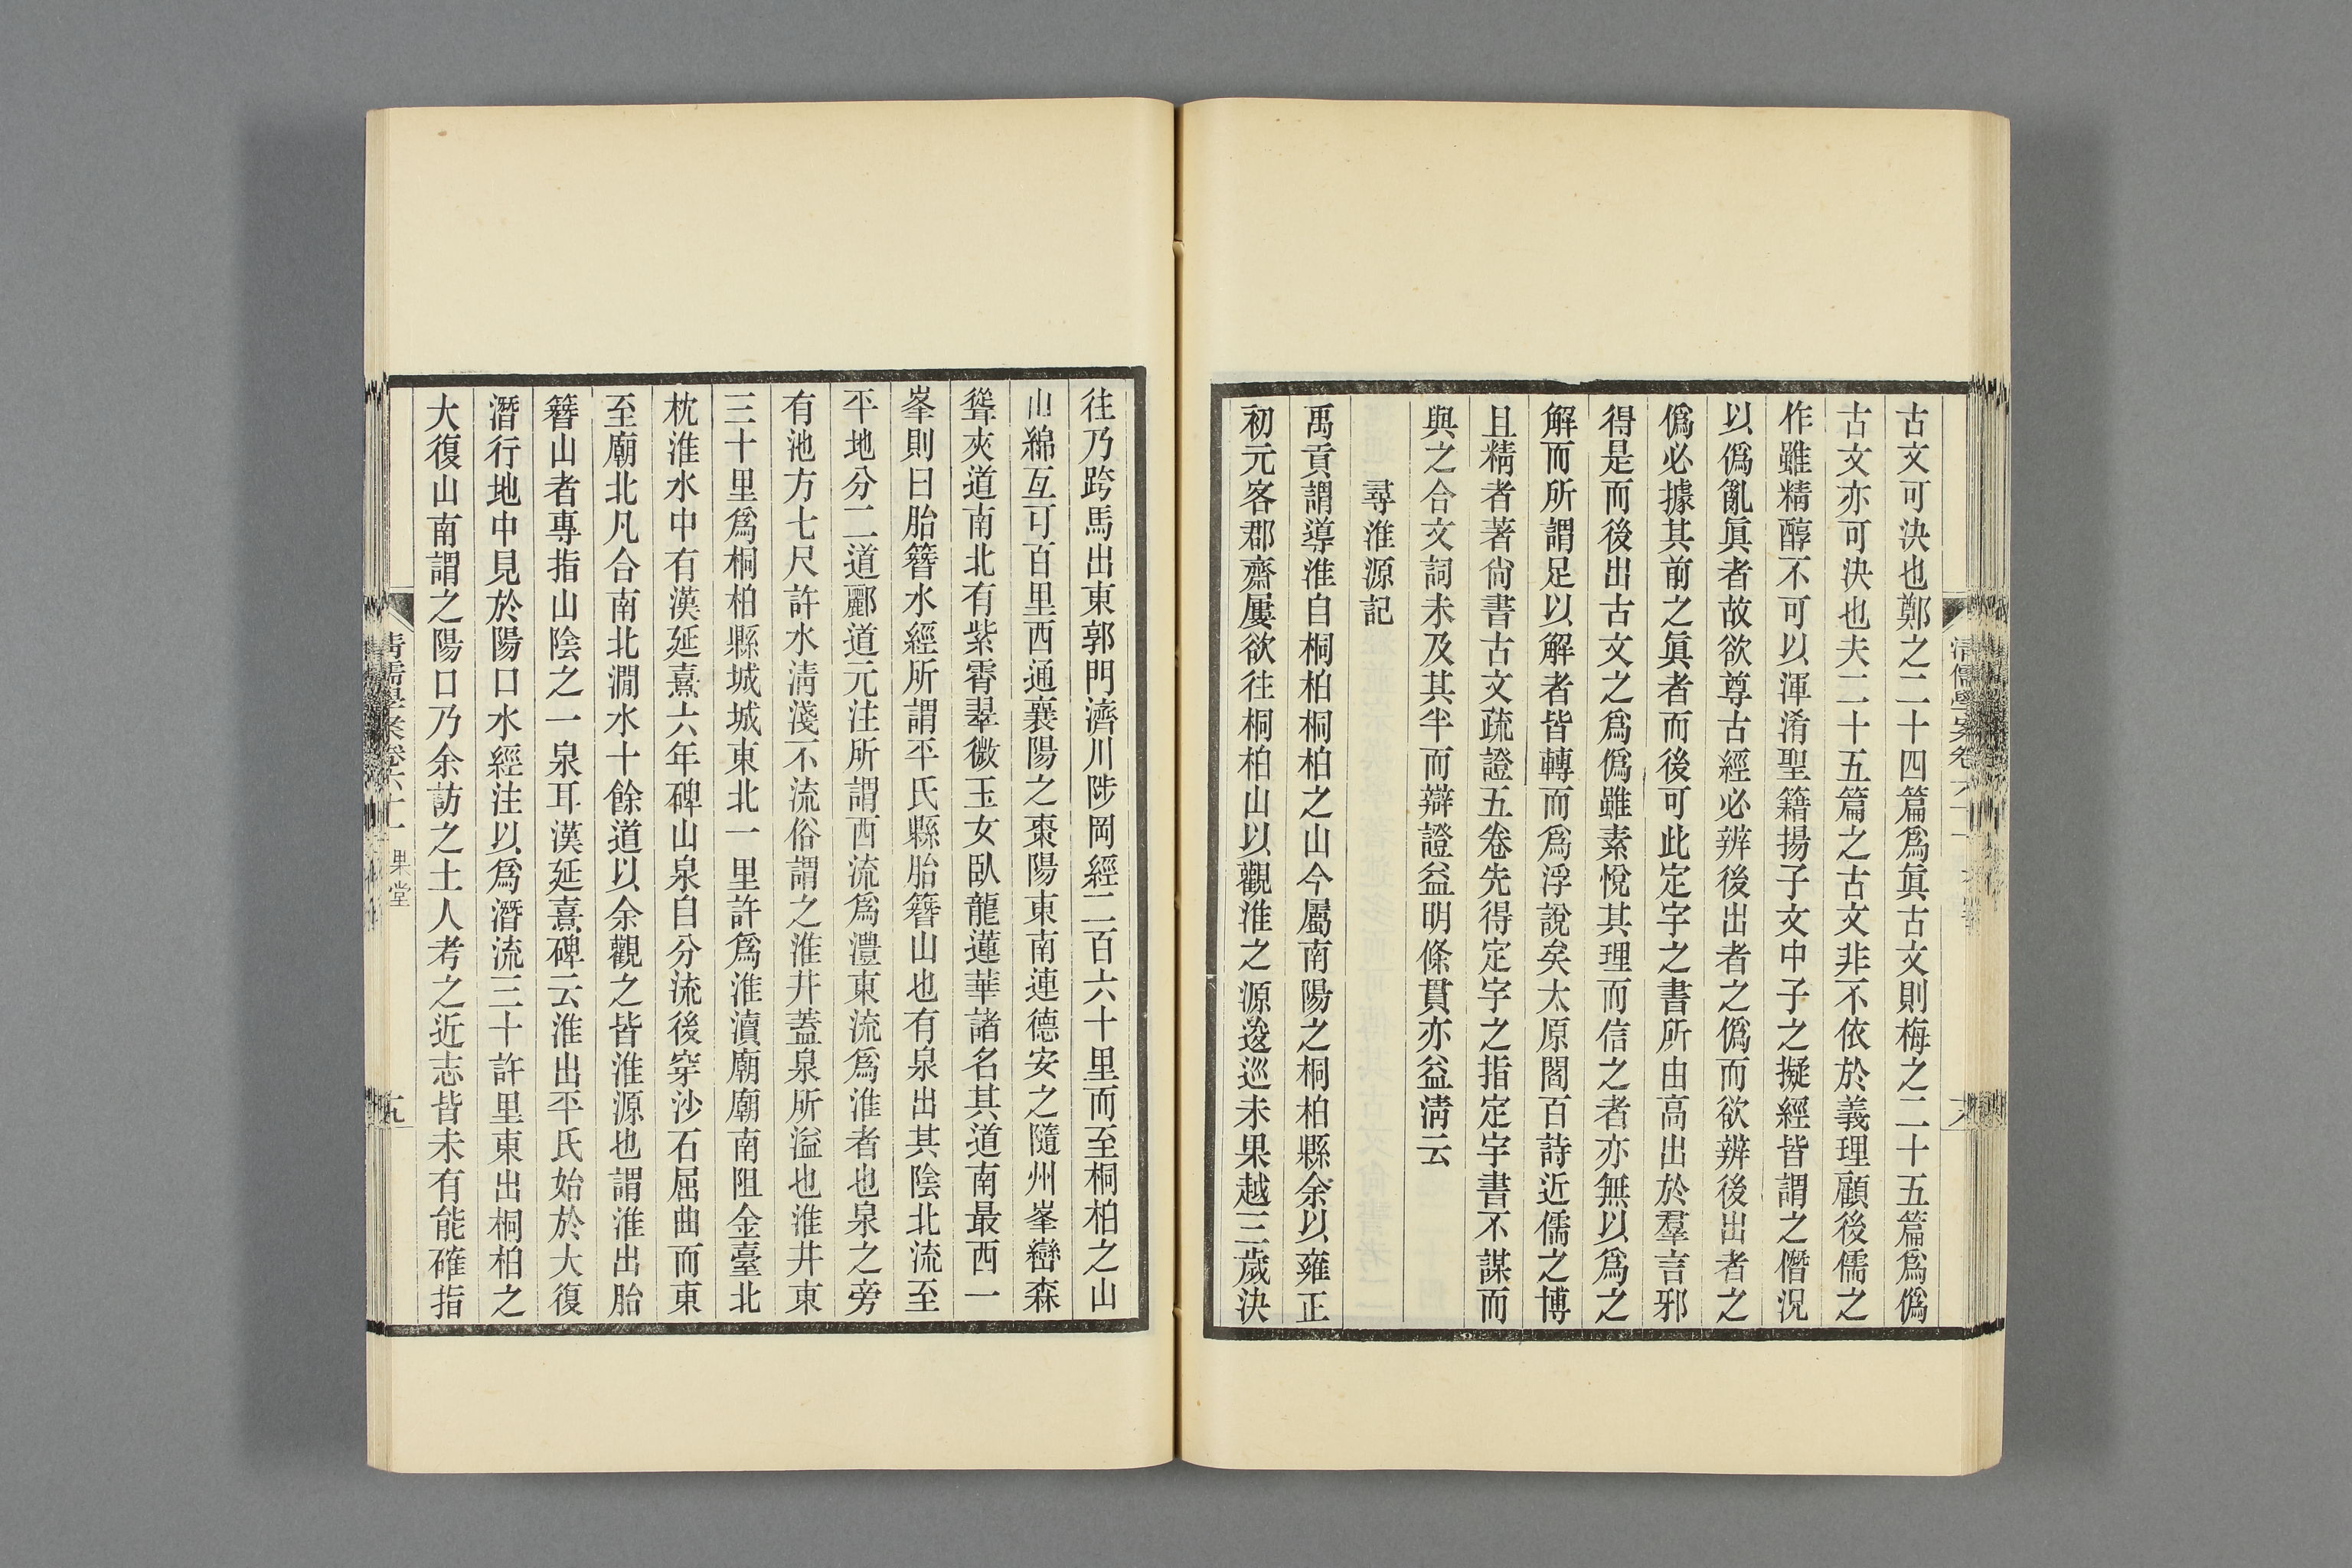 古文可決也鄭之二十四篇爲眞古文則梅之二十五篇爲僞
古文亦可決也夫二十五篇之古文非不依於義理顧後儒之
作雖精醇不可以渾淆聖籍揚子文中子之擬經皆謂之僭況
以僞亂眞者故欲尊古經必辨後出者之僞而欲辨後出者之
僞必據其前之眞者而後可此定宇之書所由高出於羣言邪
得是而後出古文之爲僞雖素悅其理而信之者亦無以爲之
解而所謂足以解者皆轉而爲浮說矣太原閻百詩近儒之博
且精者著尙書古文疏證五卷先得定宇之指定宇書不謀而
與之合文詞未及其半而辯證益明條貫亦益淸云
尋淮源記
禹貢謂導淮自桐柏桐柏之山今屬南陽之桐柏縣余以雍正
初元客郡齋屢欲往桐柏山以觀淮之源逡巡未果越三歲決
往乃跨馬出東郭門濟川陟岡經二百六十里而至桐柏之山
山綿亙可百里西通襄陽之棗陽東南連德安之隨州峯巒森
聳夾道南北有紫霄翠微玉女臥龍蓮華諸名其道南最西一
峯則曰胎簪水經所謂平氏縣胎簪山也有泉出其陰北流至
平地分二道酈道元注所謂西流爲澧東流爲淮者也泉之旁
有池方七尺許水淸淺不流俗謂之淮井蓋泉所溢也淮井東
三十里爲桐柏縣城城東北一里許爲淮瀆廟廟南阻金臺北
枕淮水中有漢延熹六年碑山泉自分流後穿沙石屈曲而東
至廟北凡合南北澗水十餘道以余觀之皆淮源也謂淮出胎
簪山者專指山陰之一泉耳漢延熹碑云淮出平氏始於大復
潛行地中見於陽口水經注以爲潛流三十許里東出桐柏之
大復山南謂之陽口乃余訪之土人考之近志皆未有能確指
清儒學案卷六十一 果堂
十九